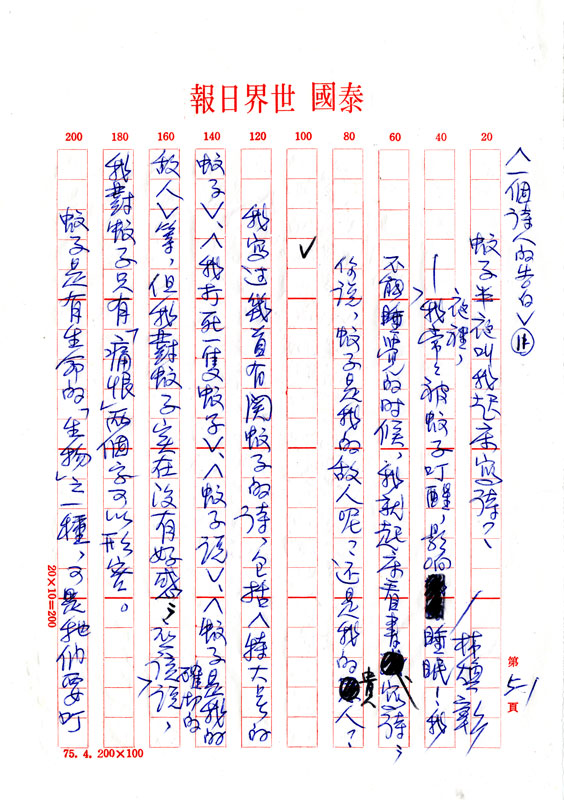 泰國世界日報
200 180 160 140 120 100 80 60 40 20
〈一個詩人的告白〉⑪
蚊子半夜叫我起床寫詩？
林煥彰
夜裡，
—我常々被蚊子叮醒，影响睡眠！我
不能睡覺的时候，我就起床看書、寫詩；
你说，蚊子是我的敌人呢？还是我的貴人？
✓
我寫过幾首有関蚊子的诗，包括〈特大号的
蚊子〉、〈我打死一隻蚊子〉、〈蚊子說〉、〈蚊子是我的
敌人〉等，但我對蚊子实在没有好感；應该说，
確切的
我對蚊子只有「痛恨」兩個字可以形容。
蚊子是有生命的「生物」之一種，可是牠們要叮
第 51 頁
20×10=200
75.4. 200×100